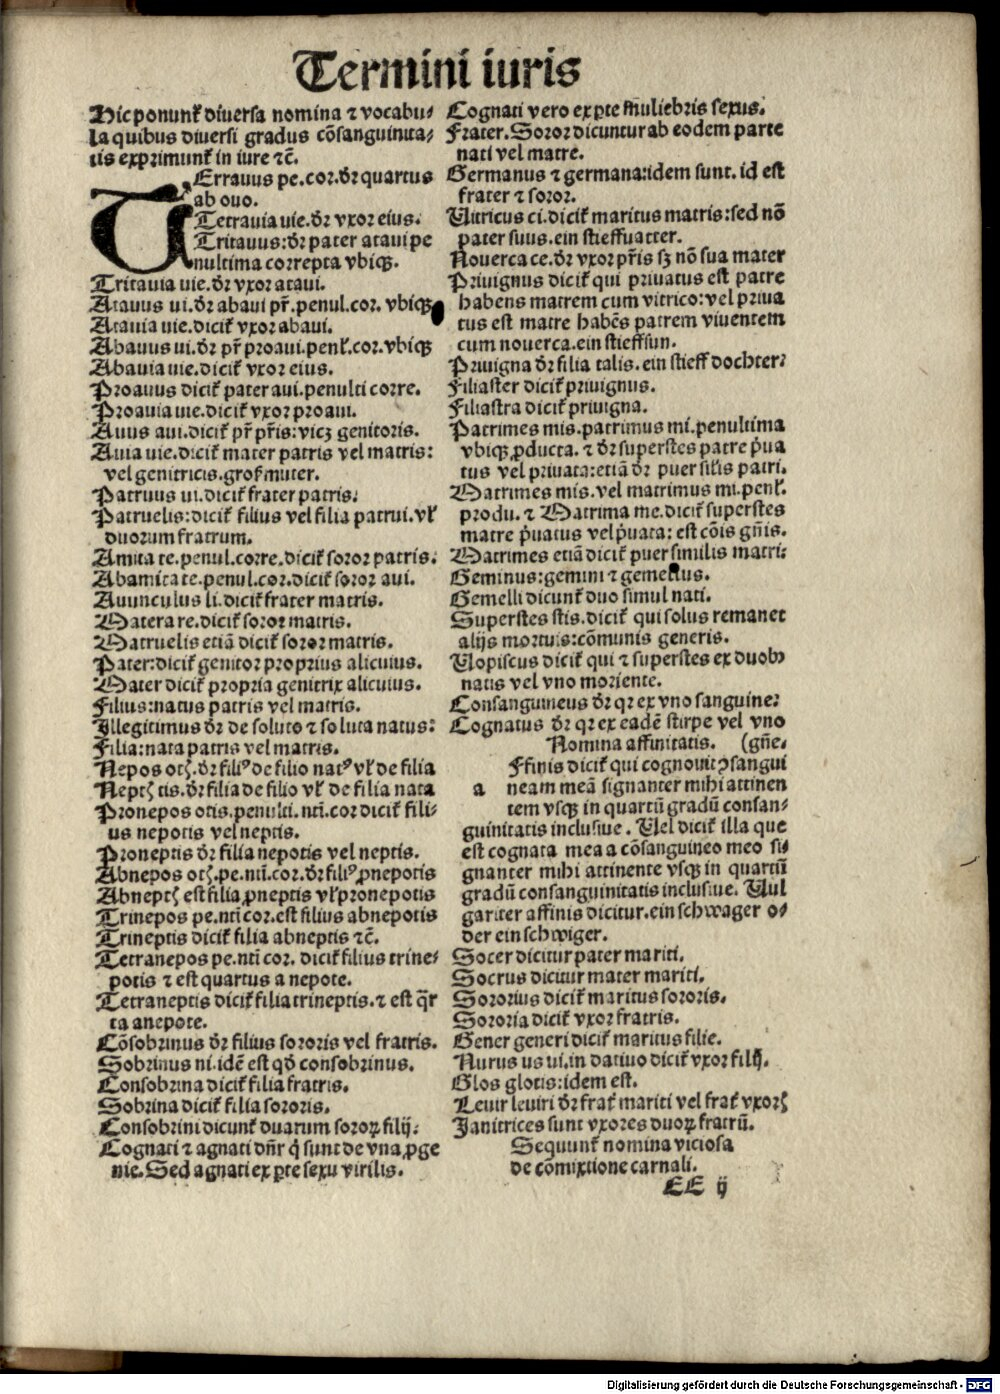 Termini iuris
Hic ponunt᷑ diuersa nomina ⁊ vocabu-
la quibus diuersi gradus cōsanguinita-
tis exprimunt᷑ in iure ⁊c̄.
TErrauus pe.cor.dr̄ quartus
ab ouo.
Tetrauia uie.dr̄ vxor eius.
Tritauus:dr̄ pater ataui pe
nultima correpta vbiqꝫ.
Tritauia uie.dr̄ vxor ataui.
Atauus ui.dr̄ abaui pr̄.penul.cor.vbiqꝫ
Atauia uie.dicit᷑ vxor abaui.
Abauus ui.dr̄ pr̄ proaui.penl̄.cor.vbiqꝫ
Abauia uie.dicit᷑ vxor eius.
Proauus dicit᷑ pater aui.penulti corre.
Proauia uie.dicit᷑ vxor proaui.
Auus aui.dicit᷑ pr̄ pr̄is:vicꝫ genitoris.
Auia uie.dicit᷑ mater patris vel matris:
vel genitricis.groß muter.
Patruus ui.dicit᷑ frater patris:
Patruelis:dicit᷑ filius vel filia patrui.vl̄
duorum fratrum.
Amita te.penul.corre.dicit᷑ soror patris.
Abamita te.penul.cor.dicit᷑ soror aui.
Auunculus li.dicit᷑ frater matris.
Matera re.dicit᷑ soror matris.
Matruelis etiā dicit᷑ soror matris.
Pater:dicit᷑ genitor proprius alicuius.
Mater dicit᷑ propria genitrix alicuius.
Filius:natus patris vel matris.
Illegitimus dr̄ de soluto ⁊ soluta natus:
Filia:nata patris vel matris.
Nepos otꝭ.dr̄ filiꝰ de filio natꝰ vl̄ de filia
Neptꝭ tis.dr̄ filia de filio vl̄ de filia nata
Pronepos otis.penulti.nti.cor dicit᷑ fili-
us nepotis vel neptis.
Proneptis dr̄ filia nepotis vel neptis.
Abnepos otꝭ.pe.nti.cor.dr̄ filiꝰ ꝓnepotis
Abneptꝭ est filia ꝓneptis vl̄ pronepotis
Trinepos pe.nti cor.est filius abnepotis
Trineptis dicit᷑ filia abneptis ⁊c̄.
Tetranepos pe.nti cor. dicit᷑ filius trine-
potis ⁊ est quartus a nepote.
Tetraneptis dicit᷑ filia trineptis.⁊ est q̄r
ta anepote.
Cōsobrinus dr̄ filius sororis vel fratris.
Sobrinus ni.idē est qd̄ consobrinus.
Consobrina dicit᷑ filia fratris.
Sobrina dicit᷑ filia sororis.
Consobrini dicunt᷑ duarum sororꝝ filij.
Cognati ⁊ agnati dn̄r q̇ sunt de vna ꝓge
nie.Sed agnati ex ꝑte sexu virilis.
Cognati vero ex ꝑte muliebris sexus.
Frater.Soror dicuntur ab eodem parte
nati vel matre.
Germanus ⁊ germana:idem sunt.id est
frater ⁊ soror.
Vitricus ci.dicit᷑ maritus matris:sed nō
pater suus.ein stieffuatter.
Nouerca ce.dr̄ vxor pr̄is sꝫ nō sua mater
Priuignus dicit᷑ qui priuatus est patre
habens matrem cum vitrico:vel priua
tus est matre habēs patrem viuentem
cum nouerca.ein stieffsun.
Priuigna dr̄ filia talis.ein stieff dochter:
Filiaster dicit᷑ priuignus.
Filiastra dicit᷑ priuigna.
Patrimes mis.patrimus mi.penultima
vbiqꝫ ꝓducta.⁊ dr̄ superstes patre ṗua
tus vel priuata:etiā dr̄ puer sil̄is patri.
Matrimes mis.vel matrimus mi.penl̄.
produ.⁊ Matrima me.dicit᷑ superstes
matre ṗuatus vel ṗuata: est cōis gn̄is.
Matrimes etiā dicit᷑ puer similis matri:
Geminus:gemini ⁊ gemellus.
Gemelli dicunt᷑ duo simul nati.
Superstes stis.dicit᷑ qui solus remanet
alijs mortuis:cōmunis generis.
Vlopiscus dicit᷑ qui ⁊ superstes ex duobꝫ
natis vel vno moriente.
Consanguineus dr̄ qr ex vno sanguine:
Cognatus dr̄ qr ex eadē stirpe vel vno
Nomina affinitatis. (gn̄e.
aFfinis dicit᷑ qui cognouit ꝯsangui
neam meā signanter mihi attinen
tem vsqꝫ in quartū gradū consan-
guinitatis inclusiue. Vel dicit᷑ illa que
est cognata mea a cōsanguineo meo si-
gnanter mihi attinente vsqꝫ in quartū
gradū consanguinitatis inclusiue. Vul
gariter affinis dicitur.ein schwager o-
der ein schwiger.
Socer dicitur pater mariti.
Socrus dicitur mater mariti.
Sororius dicit᷑ maritus sororis.
Sororia dicit᷑ vxor fratris.
Gener generi dicit᷑ maritus filie.
Nurus us ui.in datiuo dicit᷑ vxor filij.
Glos glotis:idem est.
Leuir leuiri dr̄ frat᷑ mariti vel frat᷑ vxorꝭ
Janitrices sunt vxores duoꝝ fratrū.
Sequunt᷑ nomina viciosa
de cōmixtione carnali.
EE ij
Digitalisierung gefördert durch die Deutsche Forschungsgemeinschaft - DFG